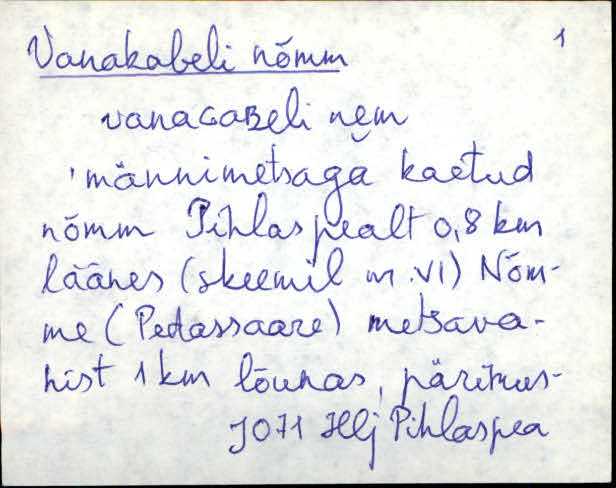 Vanakabeli nõmm 1
vanaGaBeli nem̆
'männimetsaga kaetud
nõmm Pihlaspealt 0,8 km
läänes (skeemil nr. VI) Nõm-
me (Pedassaare) metsava-
hist 1 km lõunas, pärimus-
JO71 Hlj Pihlaspea